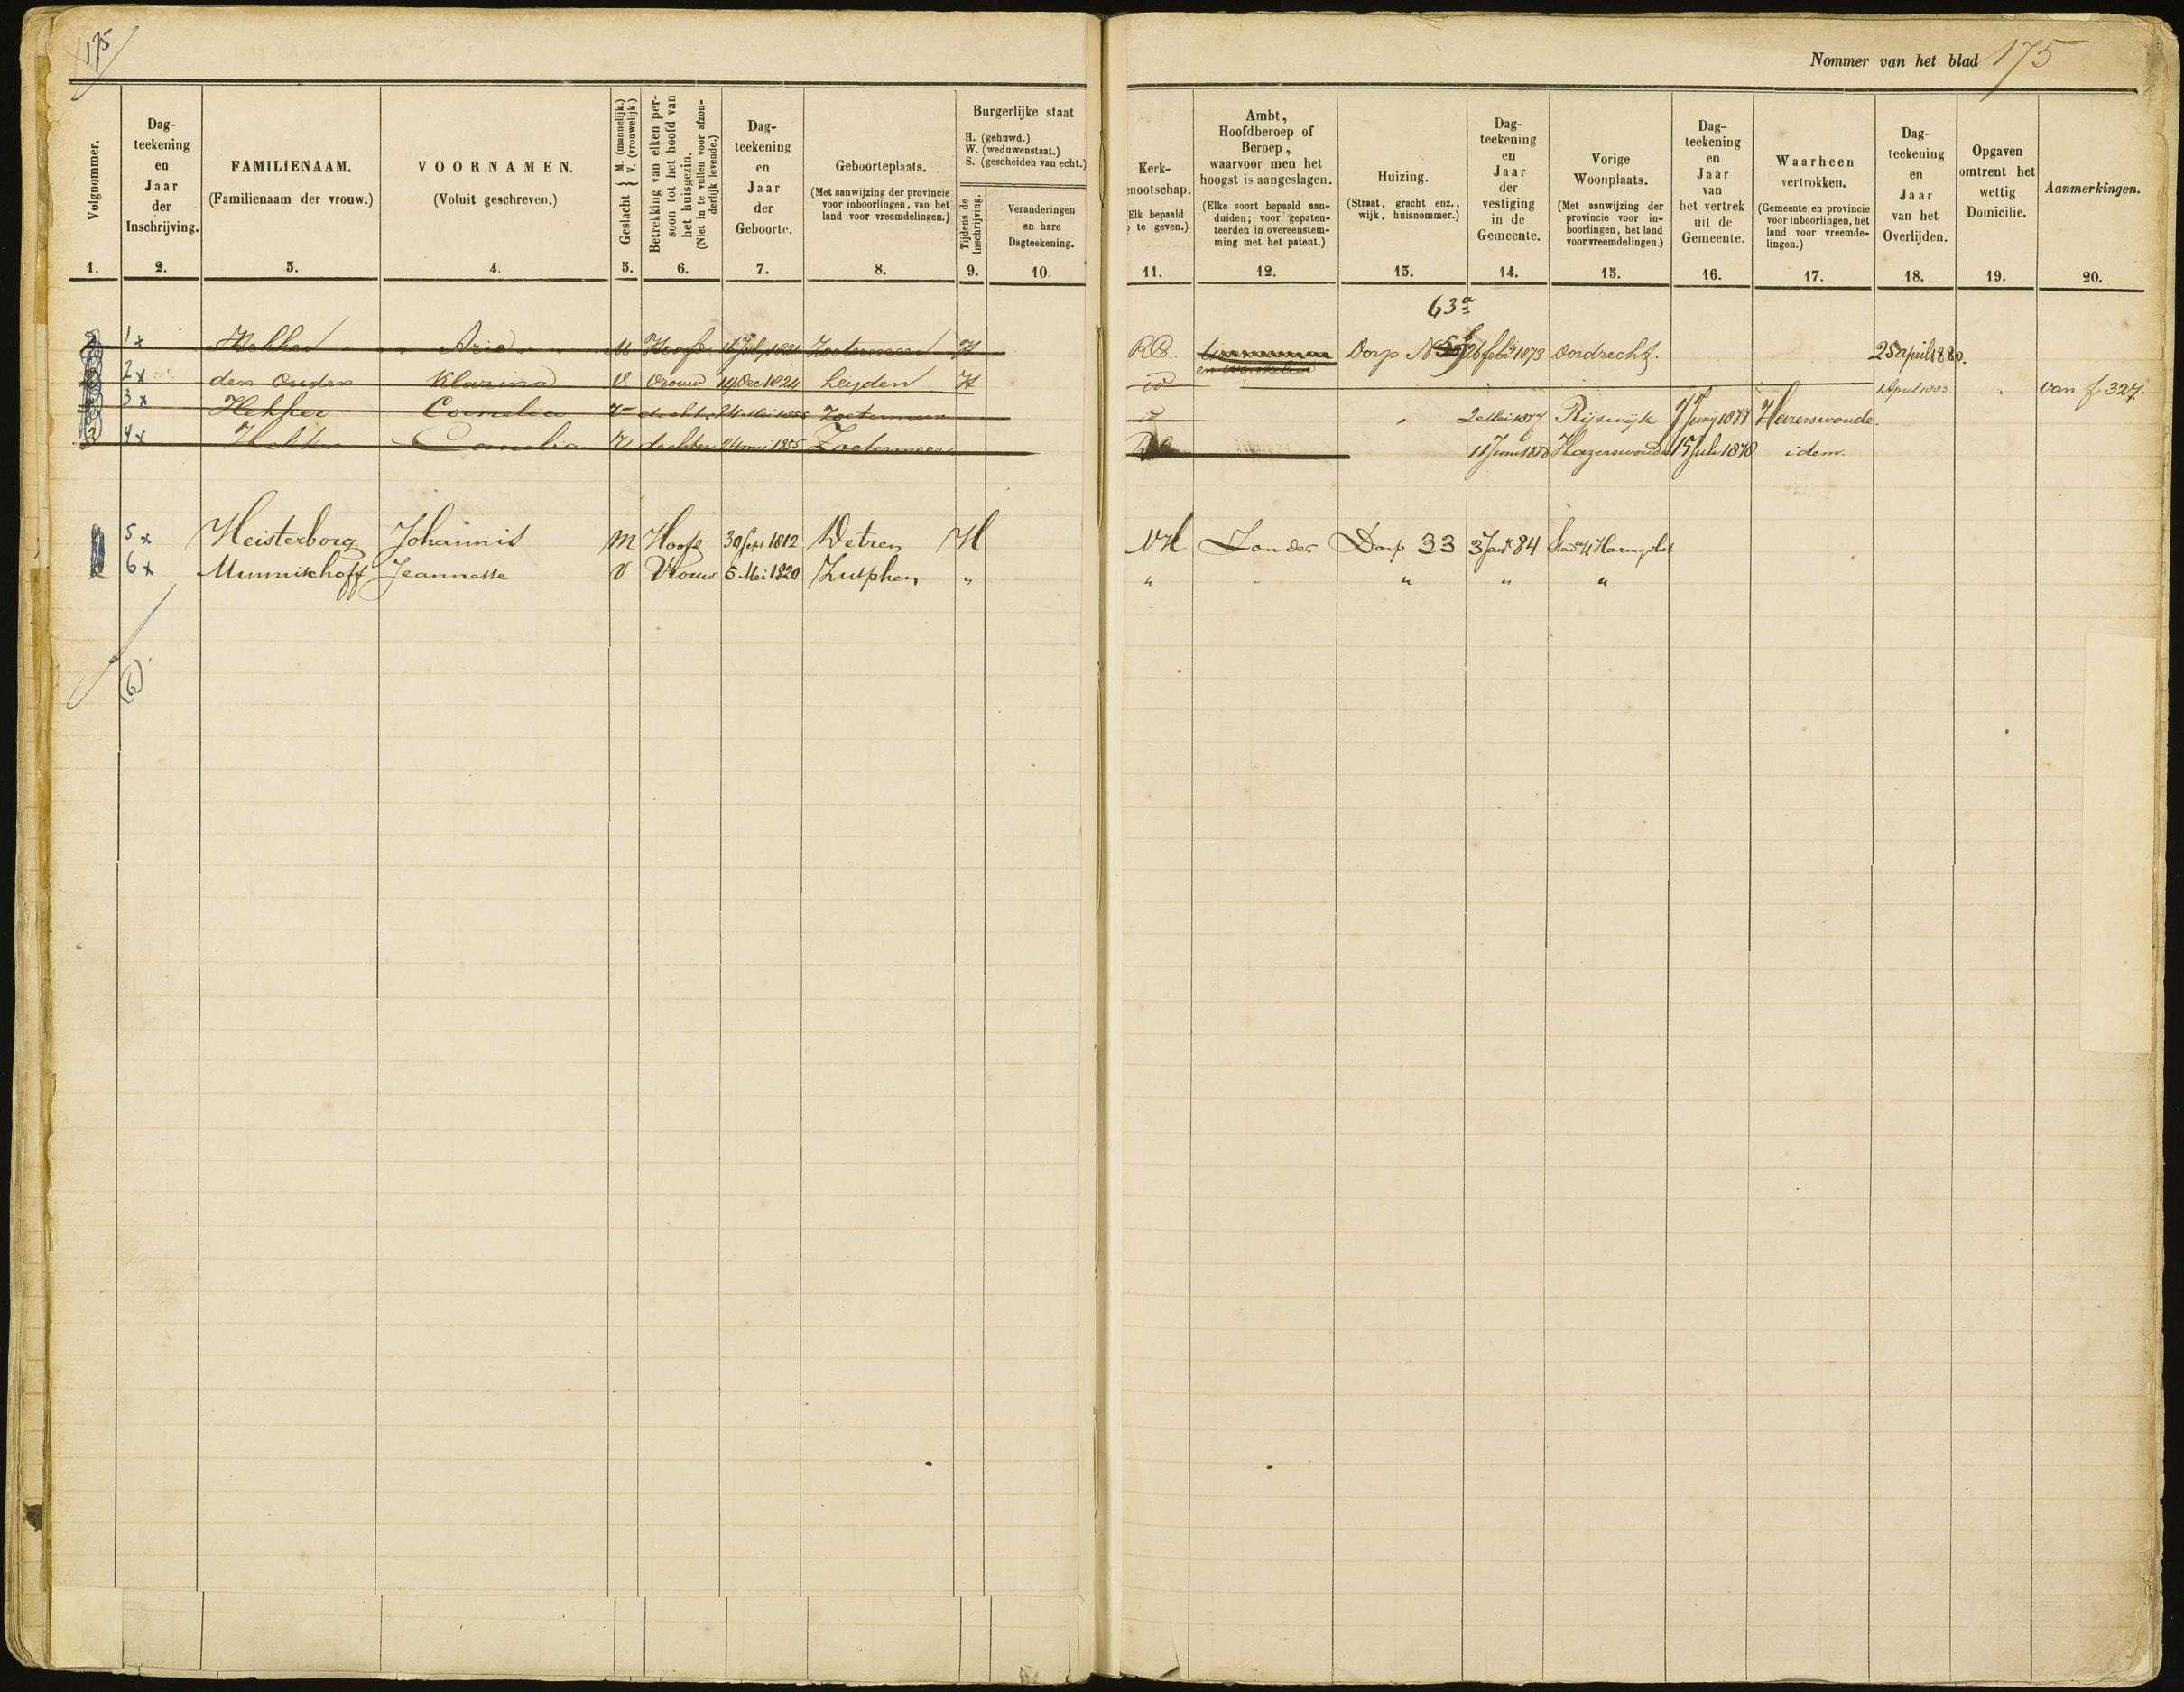 175
Nommer van het blad 175
Volgnommer.
Dag-
teekening
en
Jaar
der
Inschrijving.
FAMILIENAAM.
(Familienaam der vrouw.)
VOORNAMEN.
(Voluit geschreven.)
Geslacht { M. (mannelijk.)
V. (vrouwelijk.)
Betrekking van elken per-
soon tot het hoofd van
het huisgezin.
(Niet in te vullen voor afzon-
derlijk levende.)
Dag-
teekening
en
Jaar
der
Geboorte.
Geboorteplaats.
(Met aanwijzing der provincie
voor inboorlingen, van het
land voor vreemdelingen.)
Burgerlijke staat
H. (gehuwd.)
W. (weduwenstaat.)
S. (gescheiden van echt.)
Tijdens de
Inschrijving.
Veranderingen
en hare
Dagteekening.
Kerk-
enootschap.
Elk bepaald
te geven.)
Ambt,
Hoofdberoep of
Beroep,
waarvoor men het
hoogst is aangeslagen.
(Elke soort bepaald aan-
duiden; voor gepaten-
teerden in overeenstem-
ming met het patent.)
Huizing.
(Straat, gracht enz.,
wijk, huisnommer.)
Dag-
teekening
en
Jaar
der
vestiging
in de
Gemeente.
Vorige
Woonplaats.
(Met aanwijzing der
provincie voor in-
boorlingen, het land
voor vreemdelingen.)
Dag-
teekening
en
Jaar
van
het vertrek
uit de
Gemeente.
Waarheen
vertrokken.
(Gemeente en provincie
voor inboorlingen, het
land voor vreemde-
lingen.)
Dag-
teekening
en
Jaar
van het
Overlijden.
Opgaven
omtrent het
wettig
Domicilie.
Aanmerkingen.
1. 2. 3. 4. 5. 6. 7. 8. 9. 10. 11. 12. 13. 14. 15. 16. 17. 18. 19. 20.
63a
1x Hekker Arie M Hoofd July 1821 Zoetermeer H RC. Dorp No 26 Feb 1873 Dordrecht. 25 april 1880.
en winkelier
2x den Ouden Klarina V Vrouw 14 Dec 1824 Leyden H id 1 April 1883 van f 327.
3x Hekker Cornelia V dochter 24 Mei 1855 Zoetermeer id " 2 Mei 1877 Rijswijk Juny 1877 Hazerswoude.
4x Hekker Cornelia V dochter 24 mei 1855 Zoetermeer 11 Juni 1878 Hazerswoude 15 Juli 1878 idem.
5x Heisterborg Johannis M Hoofd 30 Sept 1812 Detren H NH Zonder Dorp 33 3 Jan 84
6x Munnikhoff Jeannette V Vrouw 5 Mei 1820 Zutphen " " " " " "
(6)